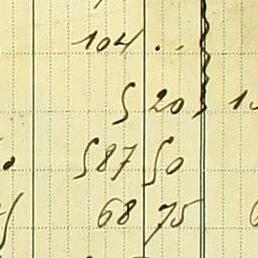 104 . .
5 20
587 50
68 75